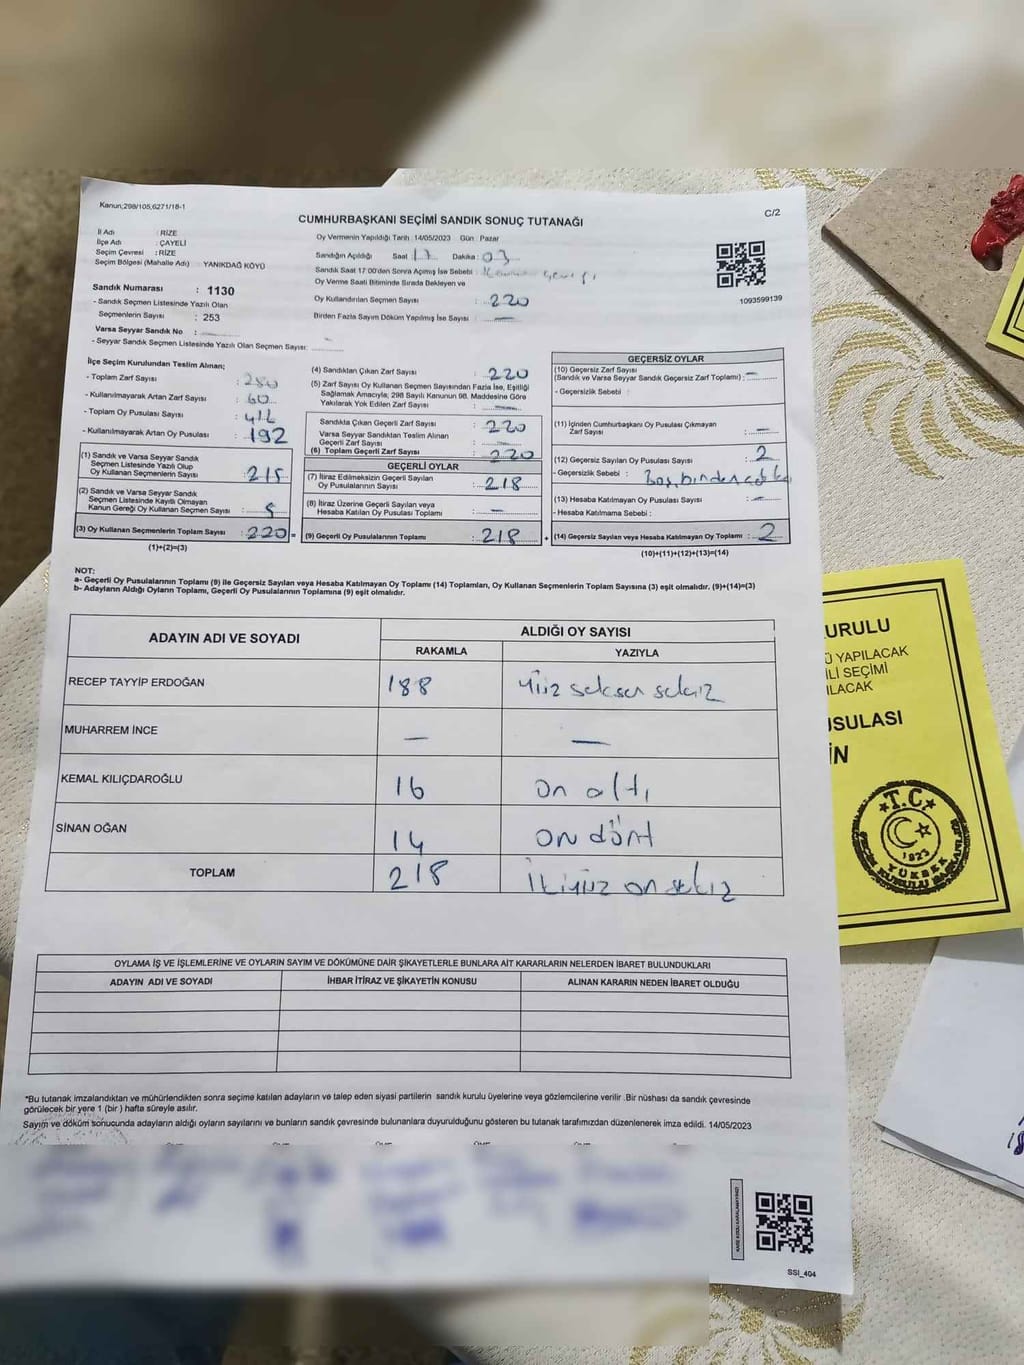 Kanun;298/105,6271/18-1
C/2
CUMHURBAŞKANI SEÇİMİ SANDIK SONUÇ TUTANAĞI
İl Adı : RİZE
İlçe Adı : ÇAYELİ
Seçim Çevresi : RİZE
Seçim Bölgesi (Mahalle Adı) YANIKDAĞ KÖYÜ
Sandık Numarası : 1130
- Sandık Seçmen Listesinde Yazılı Olan
Seçmenlerin Sayısı : 253
Varsa Seyyar Sandık No :
- Seyyar Sandık Seçmen Listesinde Yazılı Olan Seçmen Sayısı:
Oy Vermenin Yapıldığı Tarih 14/05/2023 Gün : Pazar
Sandığın Açıldığı Saat 17 Dakika : 03
Sandık Saat 17:00'den Sonra Açımış İse Sebebi :
Oy Verme Saati Bitiminde Sırada Bekleyen ve
Oy Kullandırılan Seçmen Sayısı : 220
Birden Fazla Sayım Döküm Yapılmış İse Sayısı : —
1093599139
İlçe Seçim Kurulundan Teslim Alınan;
- Toplam Zarf Sayısı : 280
- Kullanılmayarak Artan Zarf Sayısı : 60
- Toplam Oy Pusulası Sayısı : 412
- Kullanılmayarak Artan Oy Pusulası : 192
(1) Sandık ve Varsa Seyyar Sandık
Seçmen Listesinde Yazılı Olup
Oy Kullanan Seçmenlerin Sayısı : 215
(2) Sandık ve Varsa Seyyar Sandık
Seçmen Listesinde Kayıtlı Olmayan
Kanun Gereği Oy Kullanan Seçmen Sayısı : 5
(3) Oy Kullanan Seçmenlerin Toplam Sayısı : 220 =
(1)+(2)=(3)
(4) Sandıktan Çıkan Zarf Sayısı : 220
(5) Zarf Sayısı Oy Kullanan Seçmen Sayısından Fazla İse, Eşitliği
Sağlamak Amacıyla; 298 Sayılı Kanunun 98. Maddesine Göre
Yakılarak Yok Edilen Zarf Sayısı : —
Sandıkta Çıkan Geçerli Zarf Sayısı : 220
Varsa Seyyar Sandıktan Teslim Alınan
Geçerli Zarf Sayısı : —
(6) Toplam Geçerli Zarf Sayısı : 220
GEÇERLİ OYLAR
(7) İtiraz Edilmeksizin Geçerli Sayılan
Oy Pusulalarının Sayısı : 218
(8) İtiraz Üzerine Geçerli Sayılan veya
Hesaba Katılan Oy Pusulası Toplamı : —
(9) Geçerli Oy Pusulalarının Toplamı : 218 +
GEÇERSİZ OYLAR
(10) Geçersiz Zarf Sayısı
(Sandık ve Varsa Seyyar Sandık Geçersiz Zarf Toplamı) : —
- Geçersizlik Sebebi :
(11) İçinden Cumhurbaşkanı Oy Pusulası Çıkmayan
Zarf Sayısı : —
(12) Geçersiz Sayılan Oy Pusulası Sayısı : 2
- Geçersizlik Sebebi :
(13) Hesaba Katılmayan Oy Pusulası Sayısı : —
- Hesaba Katılmama Sebebi :
(14) Geçersiz Sayılan veya Hesaba Katılmayan Oy Toplamı : 2
(10)+(11)+(12)+(13)=(14)
NOT:
a- Geçerli Oy Pusulalarının Toplamı (9) ile Geçersiz Sayılan veya Hesaba Katılmayan Oy Toplamı (14) Toplamları, Oy Kullanan Seçmenlerin Toplam Sayısına (3) eşit olmalıdır. (9)+(14)=(3)
b- Adayların Aldığı Oyların Toplamı, Geçerli Oy Pusulalarının Toplamına (9) eşit olmalıdır.
ADAYIN ADI VE SOYADI
ALDIĞI OY SAYISI
RAKAMLA YAZIYLA
RECEP TAYYİP ERDOĞAN 188 Yüz seksen sekiz
MUHARREM İNCE — —
KEMAL KILIÇDAROĞLU 16 on altı
SİNAN OĞAN 14 on dört
TOPLAM 218 İkiyüz on sekiz
OYLAMA İŞ VE İŞLEMLERİNE VE OYLARIN SAYIM VE DÖKÜMÜNE DAİR ŞİKAYETLERLE BUNLARA AİT KARARLARIN NELERDEN İBARET BULUNDUKLARI
ADAYIN ADI VE SOYADI İHBAR İTİRAZ VE ŞİKAYETİN KONUSU ALINAN KARARIN NEDEN İBARET OLDUĞU
"Bu tutanak imzalandıktan ve mühürlendikten sonra seçime katılan adayların ve talep eden siyasi partilerin sandık kurulu üyelerine veya gözlemcilerine verilir .Bir nüshası da sandık çevresinde
görülecek bir yere 1 (bir ) hafta süreyle asılır.
Sayım ve döküm sonucunda adayların aldığı oyların sayılarını ve bunların sandık çevresinde bulunanlara duyurulduğunu gösteren bu tutanak tarafımızdan düzenlenerek imza edildi. 14/05/2023
SSI_404
URULU
Ü YAPILACAK
İLİ SEÇİMİ
ILACAK
USULASI
İN
T.C
1923
YÜKSEK
SEÇİM KURULU BAŞKANLIĞI